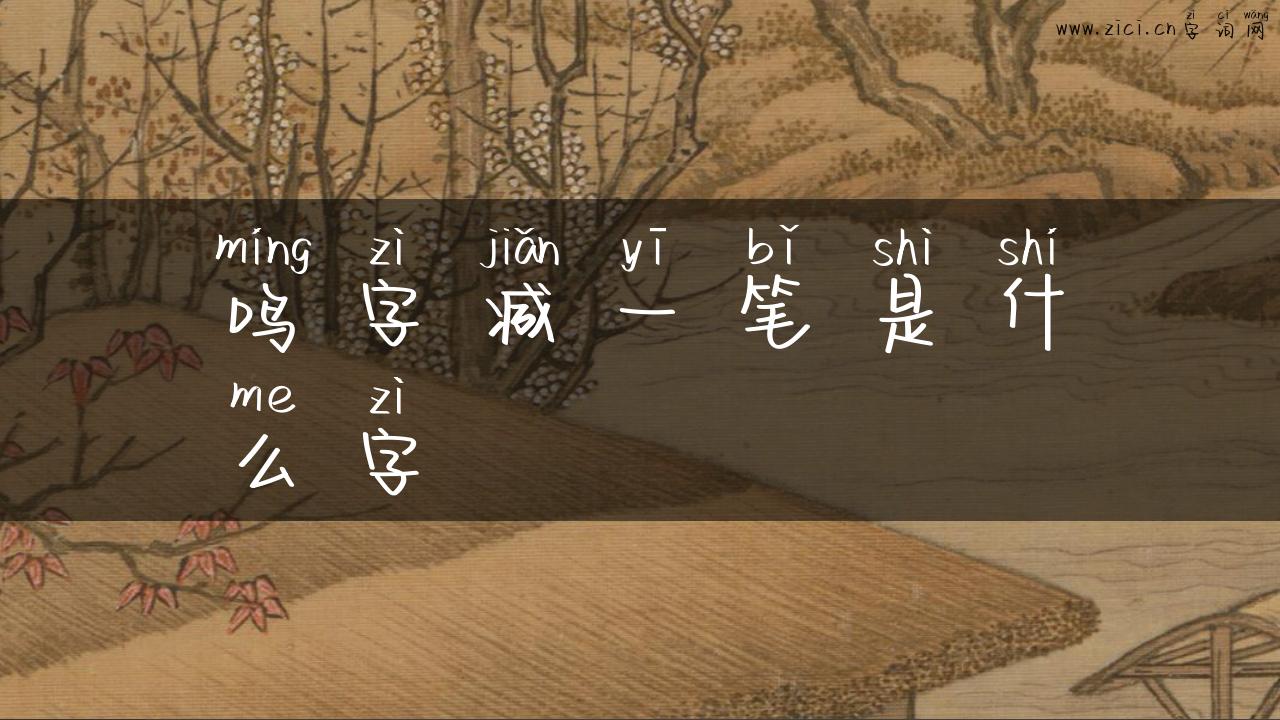 zì cí wǎng
www.zici.cn字词网
míng zì jiǎn yī bǐ shì shí
鸣字减一笔是什
me zì
么字